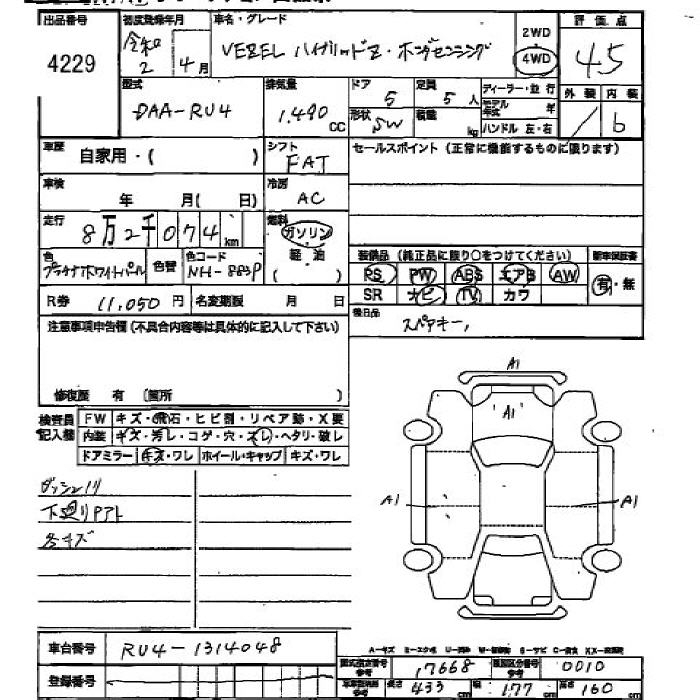 出品番号 初度登録年月 車名・グレード 評価点
4229 令和2年4月 VEZEL ハイブリッドZ・ホンダセンシング 2WD 4WD 4.5
型式 排気量 ドア 定員 ディーラー・並行 外装 内装
DAA-RU4 1.490 CC 5 5人 モデル年式 年 b
形状 SW 積載 kg ハンドル 左・右
車歴 自家用・( ) シフト FAT セールスポイント (正常に機能するものに限ります)
車検 年 月( 日) 冷房 AC
走行 8万2千074km 燃料 ガソリン 軽油 ( )
色 プラチナホワイトパール 色替 色コード NH-883P
装備品 (純正品に限り○をつけてください) 新車保証書
PS PW ABS エアB AW 有・無
SR ナビ TV カワ
R券 11,050円 名変期限 月 日 後日品
スペアキー,
注意事項申告欄 (不具合内容等は具体的に記入して下さい)
修復歴 有 (箇所 )
検査員記入欄 FW キズ・飛石・ヒビ割・リペア跡・X要
内装 キズ・汚レ・コゲ・穴・スレ・ヘタリ・破レ
ドアミラー キズ・ワレ ホイール・キャップ キズ・ワレ
A1
A1
ダッシュノリ
A1 A1
下廻りPアト
各キズ
車台番号 RU4-1314048
A-キズ
型式指定番号 参考 17668 類別区分番号 参考 0010
登録番号 長さ 433 cm 幅 177 cm 高さ 160 cm